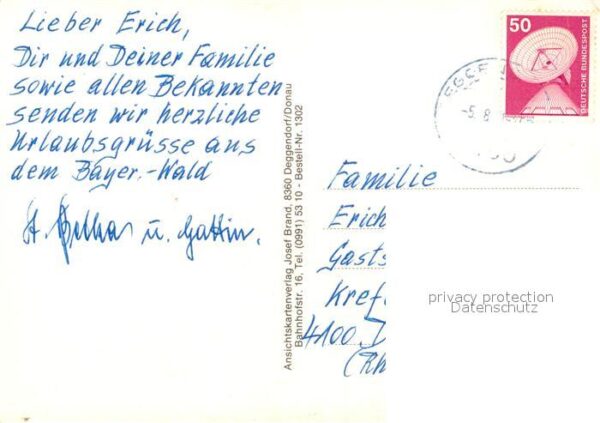 Lieber Erich,
Dir und Deiner Familie
sowie allen Bekannten
senden wir herzliche
Urlaubsgrüsse aus
dem Bayer.-Wald
u. Gattin.
Ansichtskartenverlag Josef Brand, 8360 Deggendorf/Donau
Bahnhofstr. 16, Tel. (0991) 53 10 - Bestell-Nr. 1302
50
DEUTSCHE BUNDESPOST
-5. 8.
Familie
Erich
Gasts
Kref
4100
(Rh
privacy protection
Datenschutz